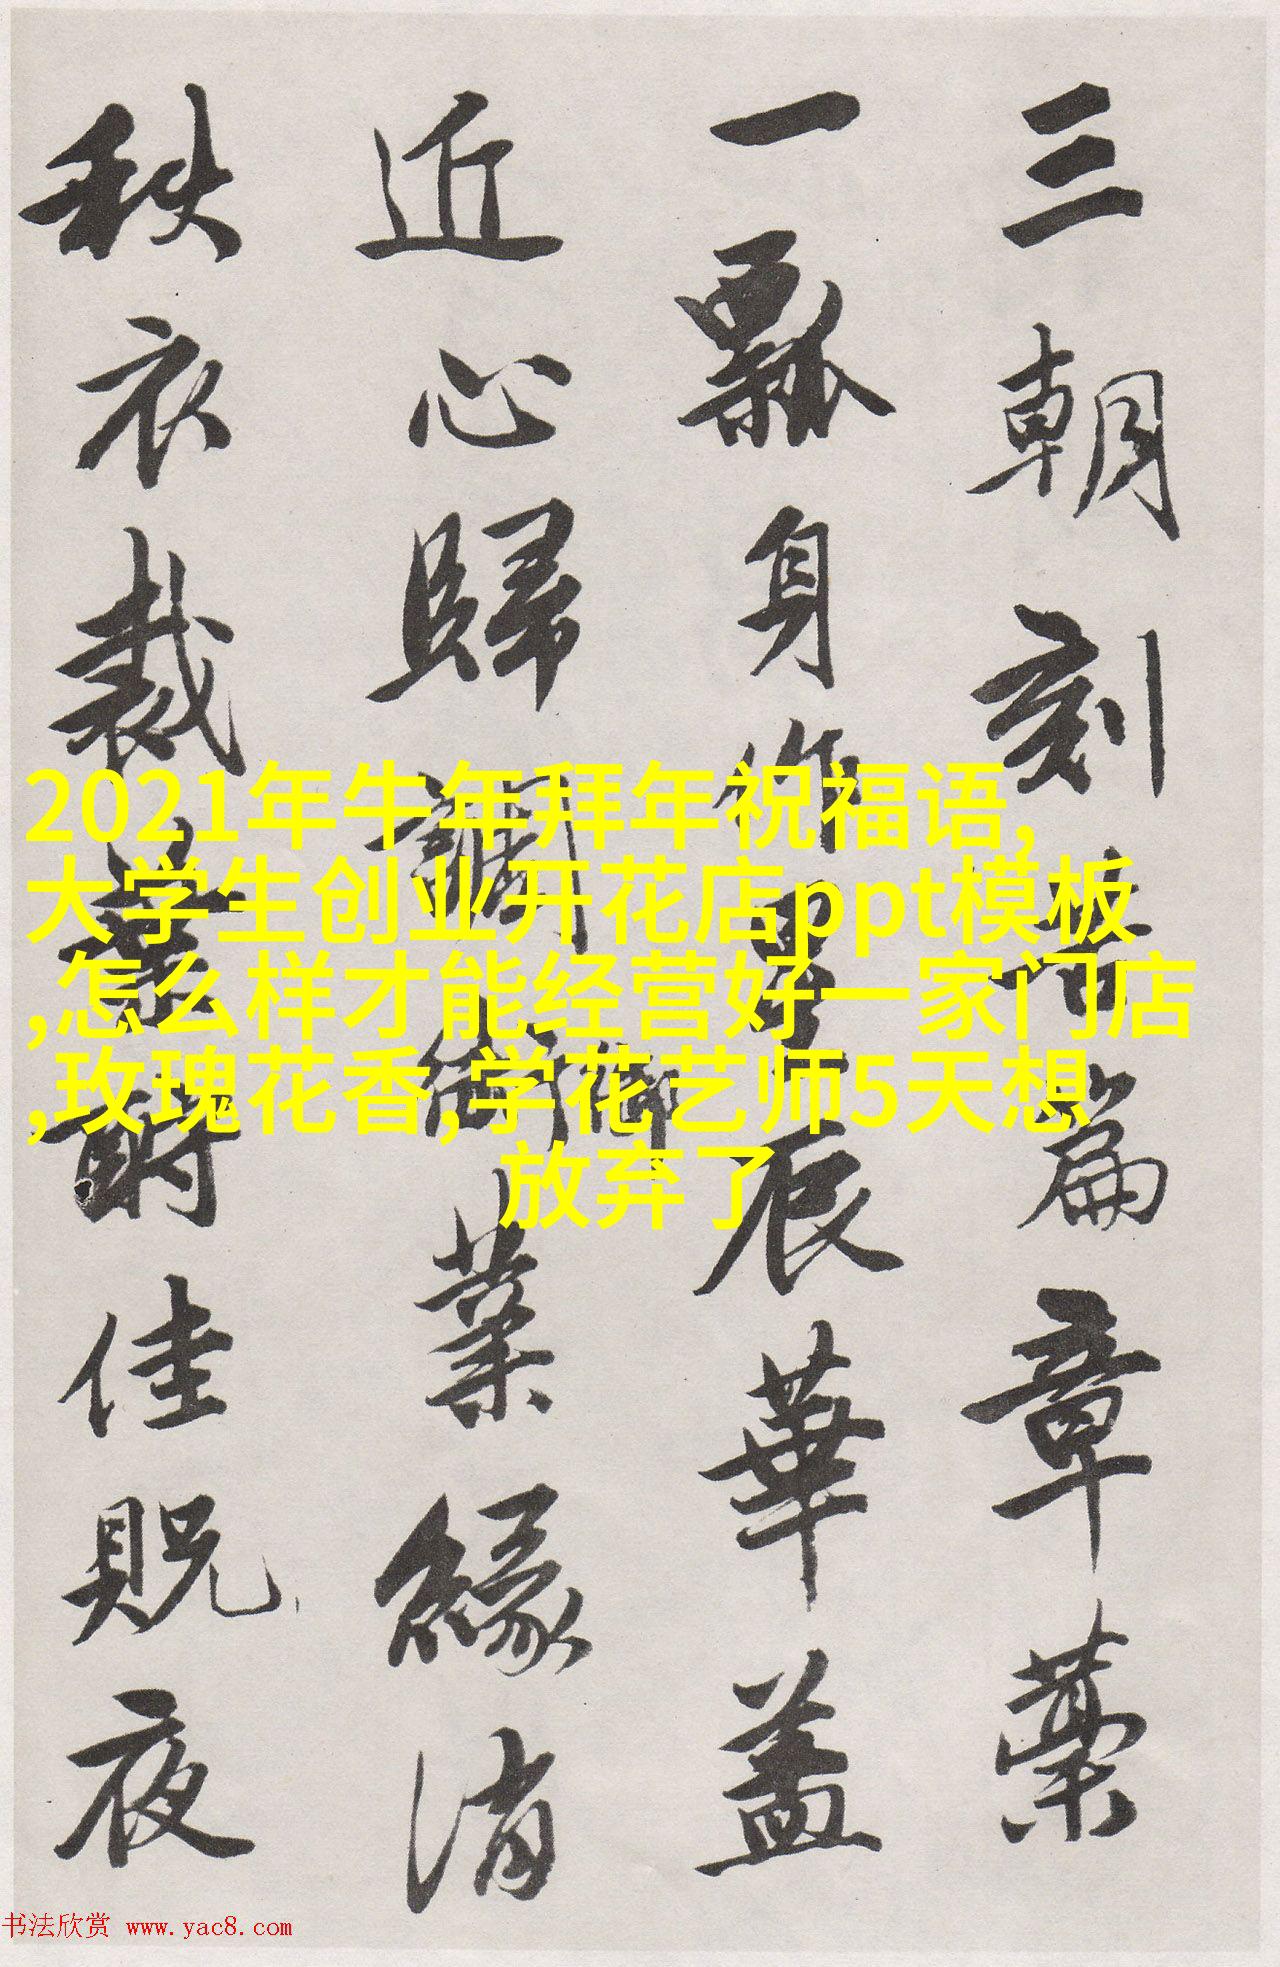 三朝刻篇章藁
一瓢身作星辰華蓋
近心歸御業緣消
衣裁葉酧佳貺夜
2021年牛年拜年祝福语,
大学生创业开花店ppt模板
,怎么样才能经营好一家门店
,玫瑰花香,学花艺师5天想
放弃了
书法欣赏 www.yac8.com